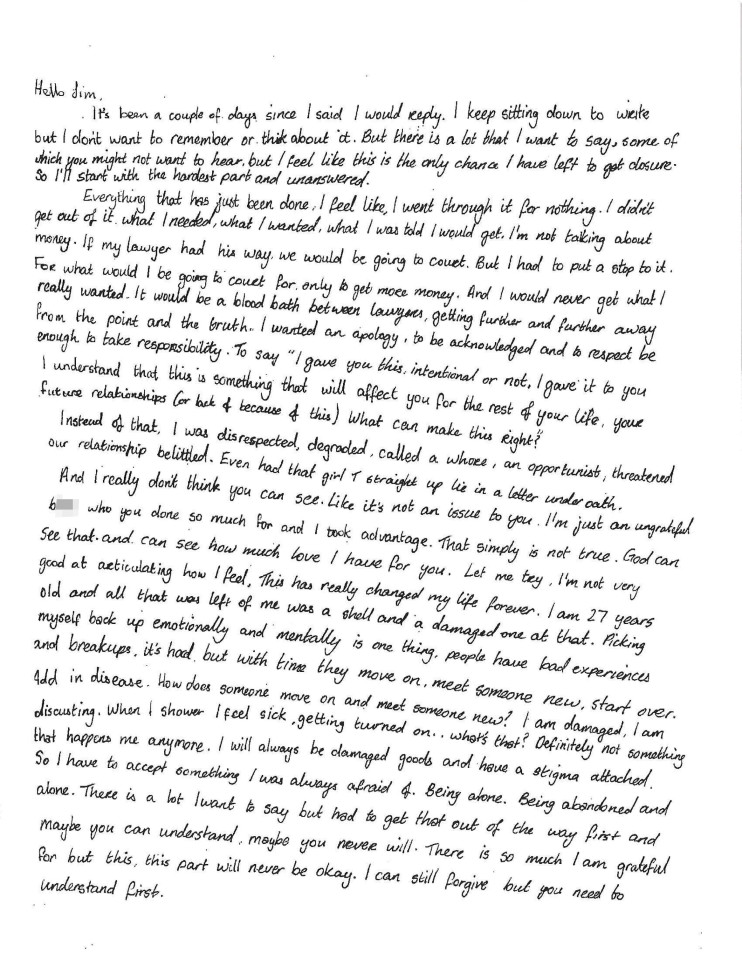 Hello Jim,
. It's been a couple of days since I said I would reply. I keep sitting down to write
but I don't want to remember or think about it. But there is a lot that I want to say, some of
which you might not want to hear, but I feel like this is the only chance I have left to get closure.
So I'll start with the hardest part and unanswered.
Everything that has just been done, I feel like, I went through it for nothing. I didn't
get out of it what I needed, what I wanted, what I was told I would get. I'm not talking about
money. If my lawyer had his way, we would be going to court. But I had to put a stop to it.
For what would I be going to court for, only to get more money. And I would never get what I
really wanted. It would be a blood bath between lawyers, getting further and further away
from the point and the truth. I wanted an apology, to be acknowledged and to respect be
enough to take responsibility. To say "I gave you this, intentional or not, I gave it to you
I understand that this is something that will affect you for the rest of your life, your
future relationships (or lack of because of this) What can make this right?"
Instead of that, I was disrespected, degraded, called a whore, an opportunist, threatened
our relationship belittled. Even had that girl T straight up lie in a letter under oath.
And I really don't think you can see. Like it's not an issue to you. I'm just an ungrateful
b who you done so much for and I took advantage. That simply is not true. God can
see that and can see how much love I have for you. Let me try, I'm not very
good at articulating how I feel. This has really changed my life forever. I am 27 years
old and all that was left of me was a shell and a damaged one at that. Picking
myself back up emotionally and mentally is one thing, people have bad experiences
and breakups, it's hard, but with time they move on, meet someone new, start over.
Add in disease. How does someone move on and meet someone new? I am damaged, I am
discusting. When I shower I feel sick, getting turned on.. what's that? Definitely not something
that happens me anymore. I will always be damaged goods and have a stigma attached.
So I have to accept something I was always afraid of. Being alone. Being abandoned and
alone. There is a lot I want to say but had to get that out of the way first and
maybe you can understand, maybe you never will. There is so much I am grateful
for but this, this part will never be okay. I can still forgive but you need to
understand first.